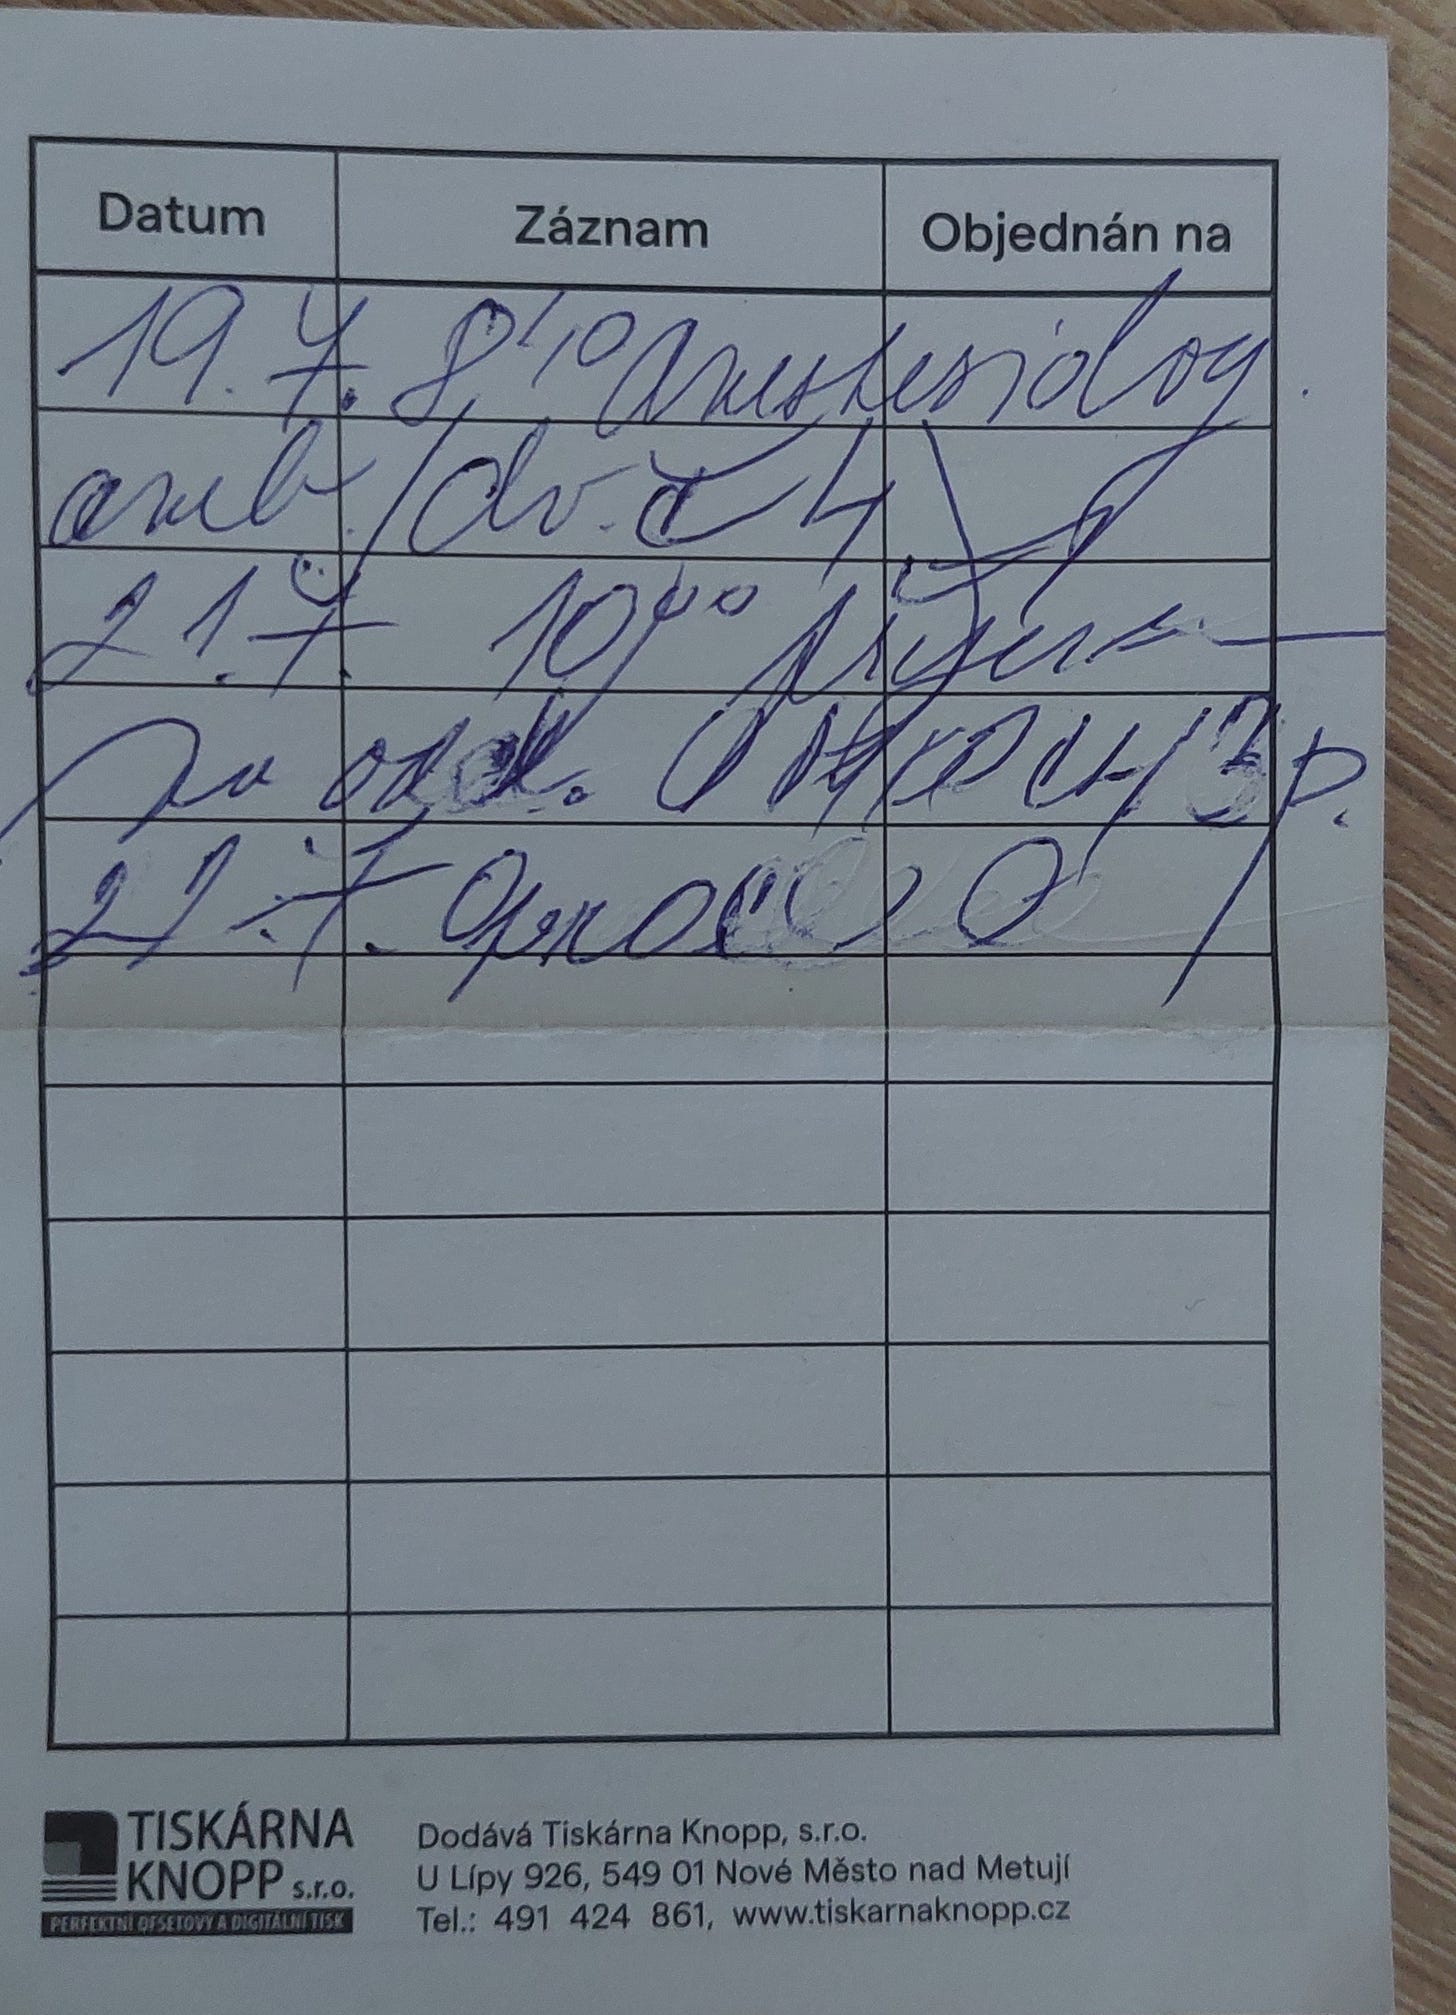 Datum Záznam Objednán na
19. 7. 8:10 Anestesiolog.
amb. dv. č 4
21. 7. 10 00 Příjem
na odd. 3p.
22. 7. Operace
TISKÁRNA
KNOPP s.r.o.
PERFEKTNÍ OFSETOVÝ A DIGITÁLNÍ TISK
Dodává Tiskárna Knopp, s.r.o.
U Lípy 926, 549 01 Nové Město nad Metují
Tel.: 491 424 861, www.tiskarnaknopp.cz